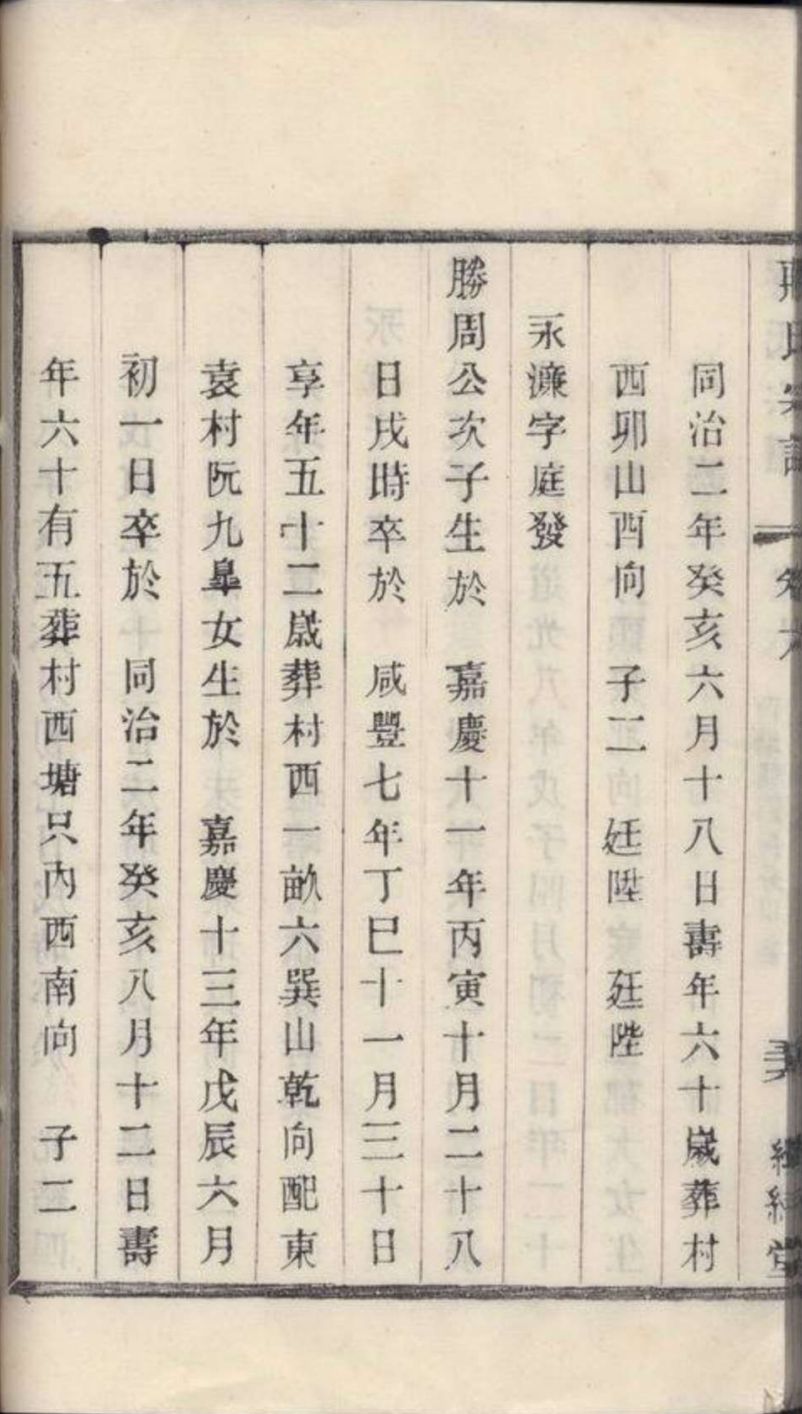 氏宗譜 卷六
同治二年癸亥六月十八日壽年六十歲葬村
西卯山酉向 子二 廷陞 廷陛
永濂字庭發
勝周公次子生於 嘉慶十一年丙寅十月二十八
日戌時卒於 咸豐七年丁巳十一月三十日
享年五十二歲葬村西一畝六巽山乾向配東
袁村阮九臯女生於 嘉慶十三年戊辰六月
初一日卒於 同治二年癸亥八月十二日壽
年六十有五葬村西塘只內西南向 子二